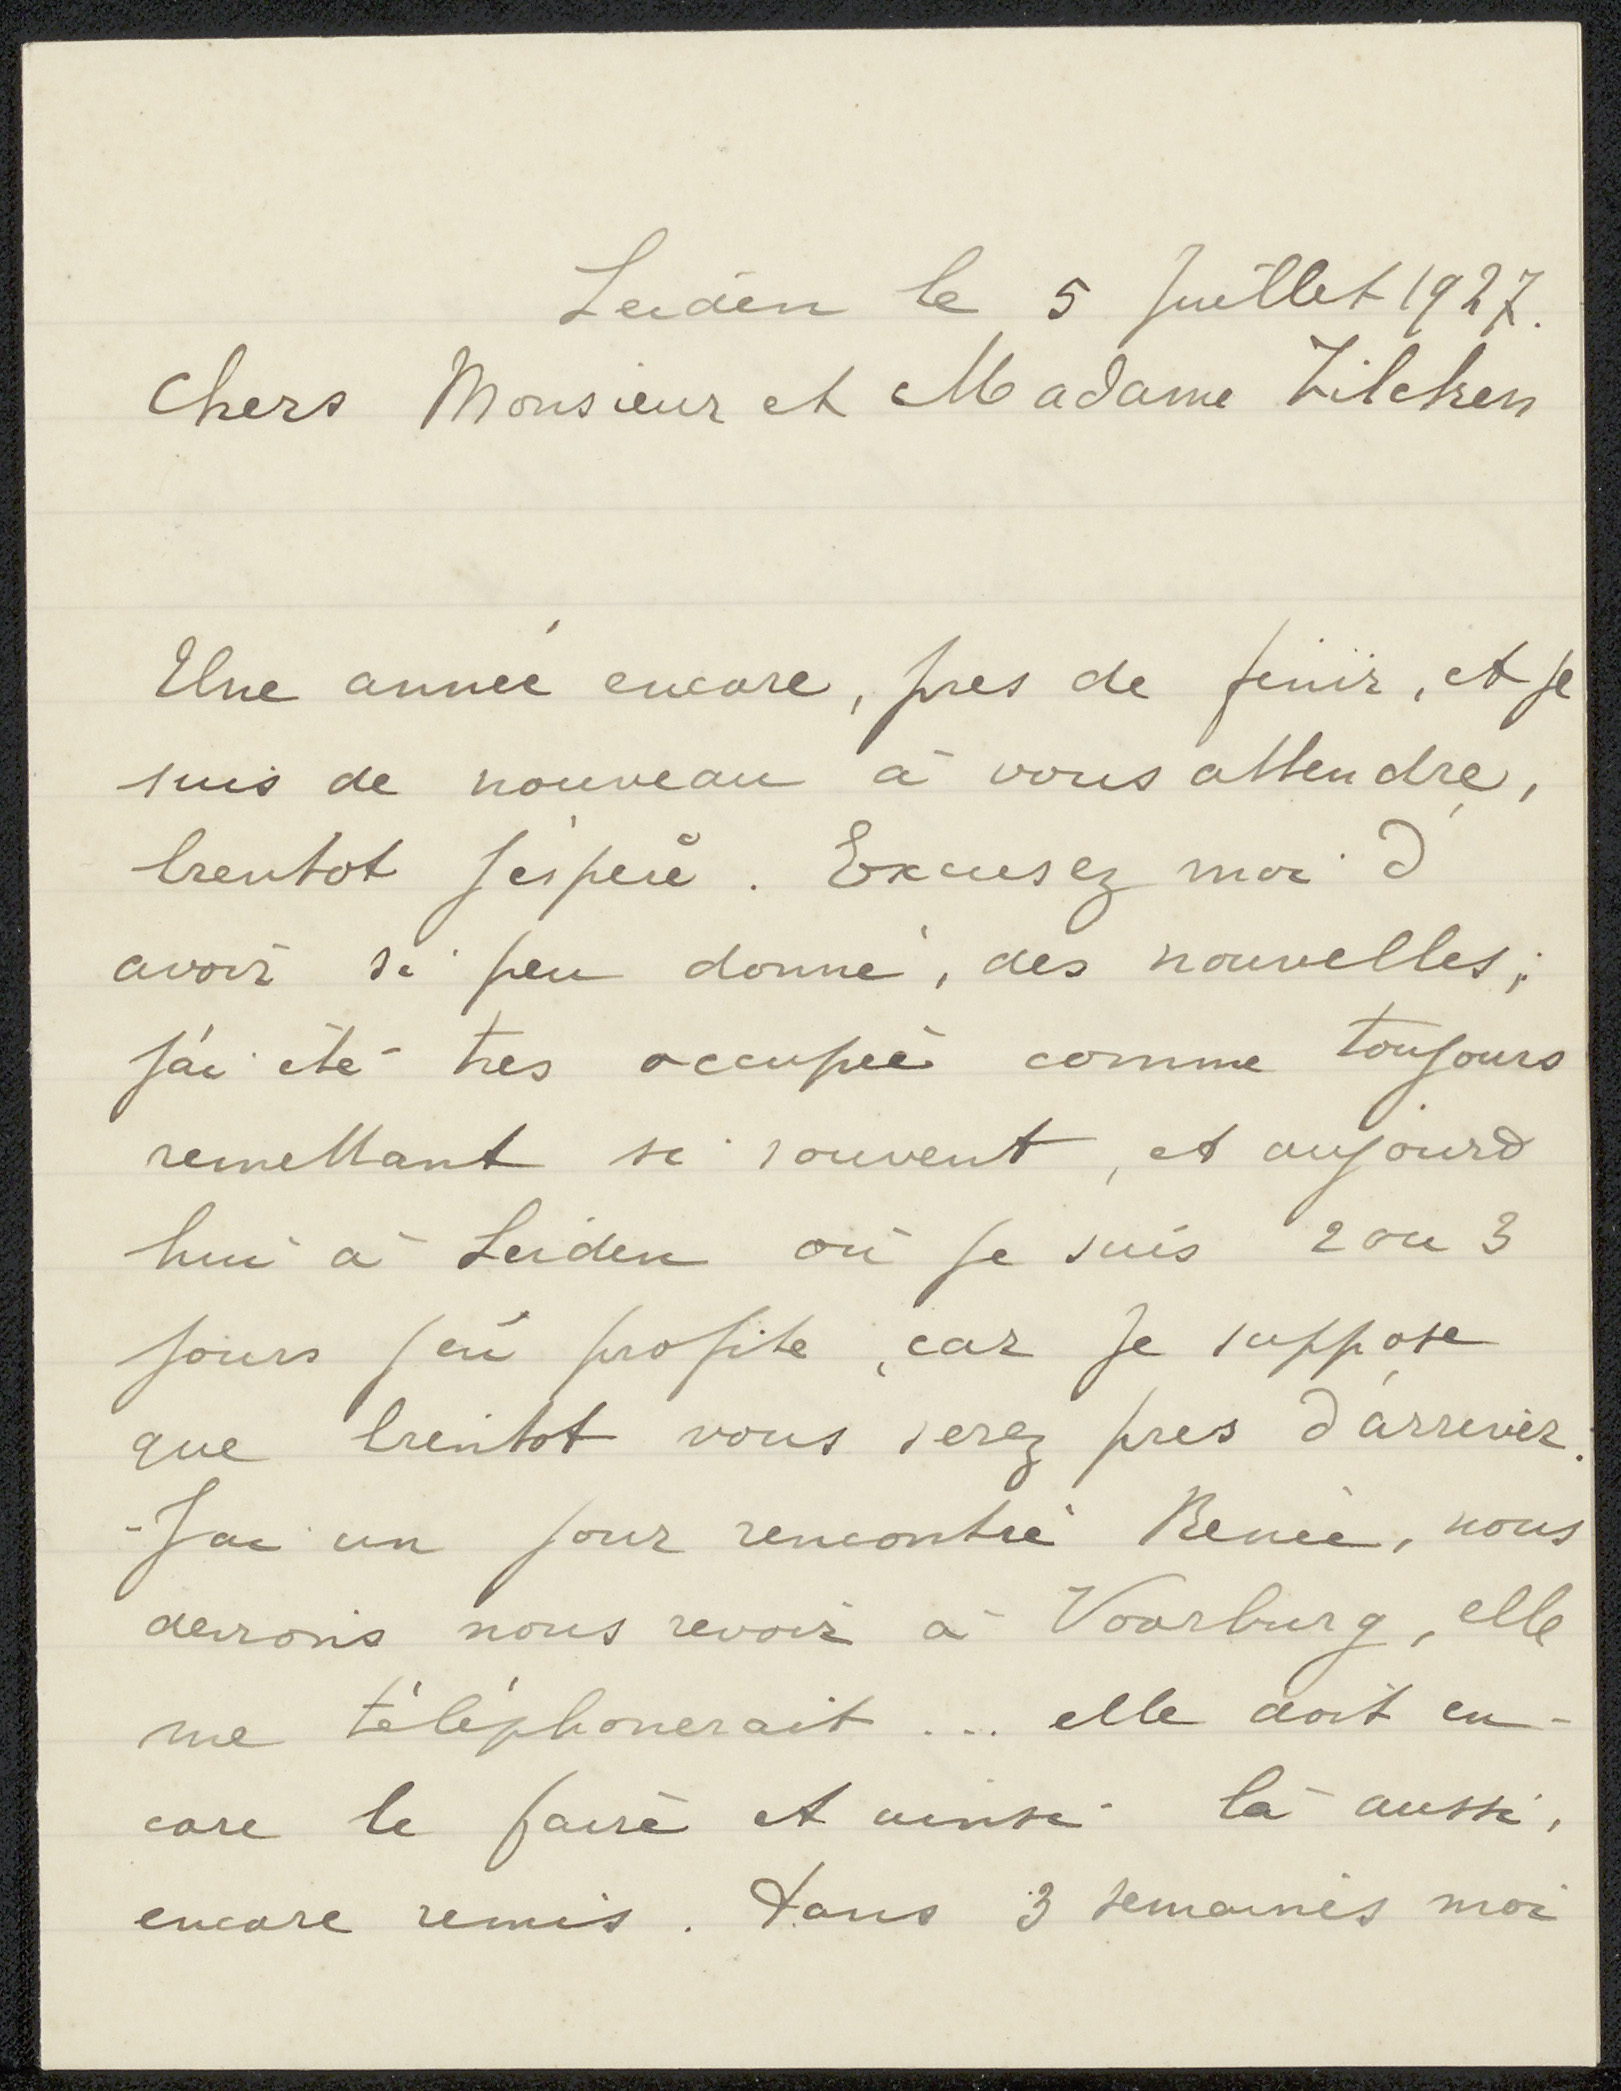 Leiden le 5 Juillet 1927.
Chers Monsieur et Madame Zilcken
Une année encore, pres de finir, et je
suis de nouveau à vous attendre,
bientot j'éspere. Excusez moi d'
avoir si peu donné, des nouvelles;
j'ai été tres occupée comme toujours
remettant si souvent, et aujourd
hui à Leiden où je suis 2 ou 3
jours j'en profite, car je suppose
que bientot vous serez pres d'arriver.
- J'ai un jour rencontré Renée, nous
devrons nous revoir à Voorburg, elle
me téléphonerait ... elle doit en-
core le faire et ainsi là aussi,
encore remis. Dans 3 semaines moi